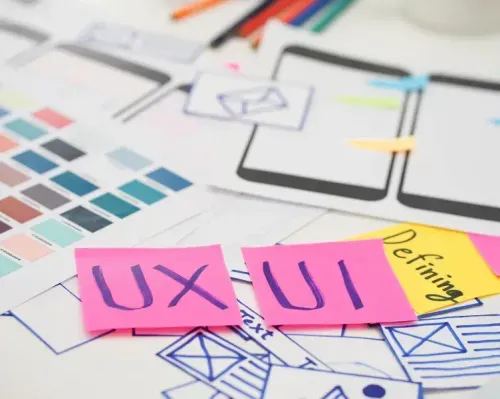 UX
UI
Defining
Text